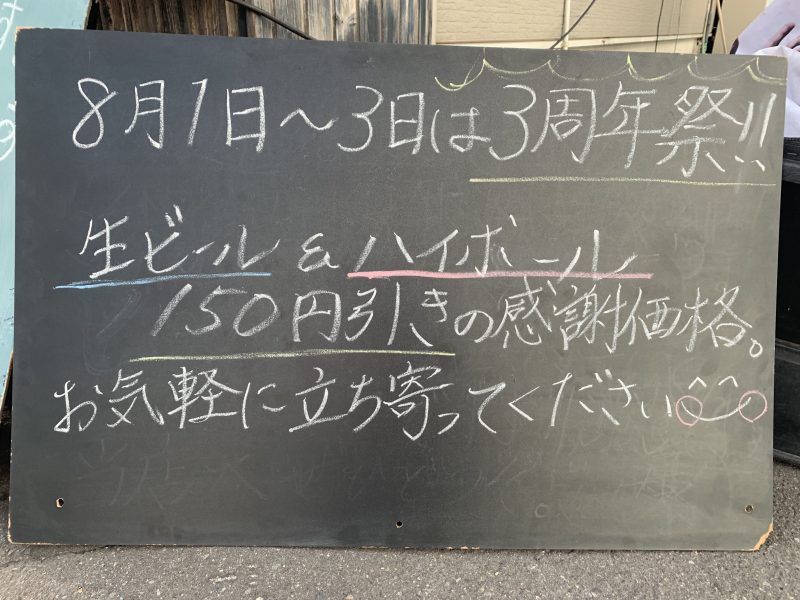 8月1日〜3日は3周年祭!!
生ビール&ハイボール
150円引きの感謝価格。
お気軽に立ち寄ってください^^